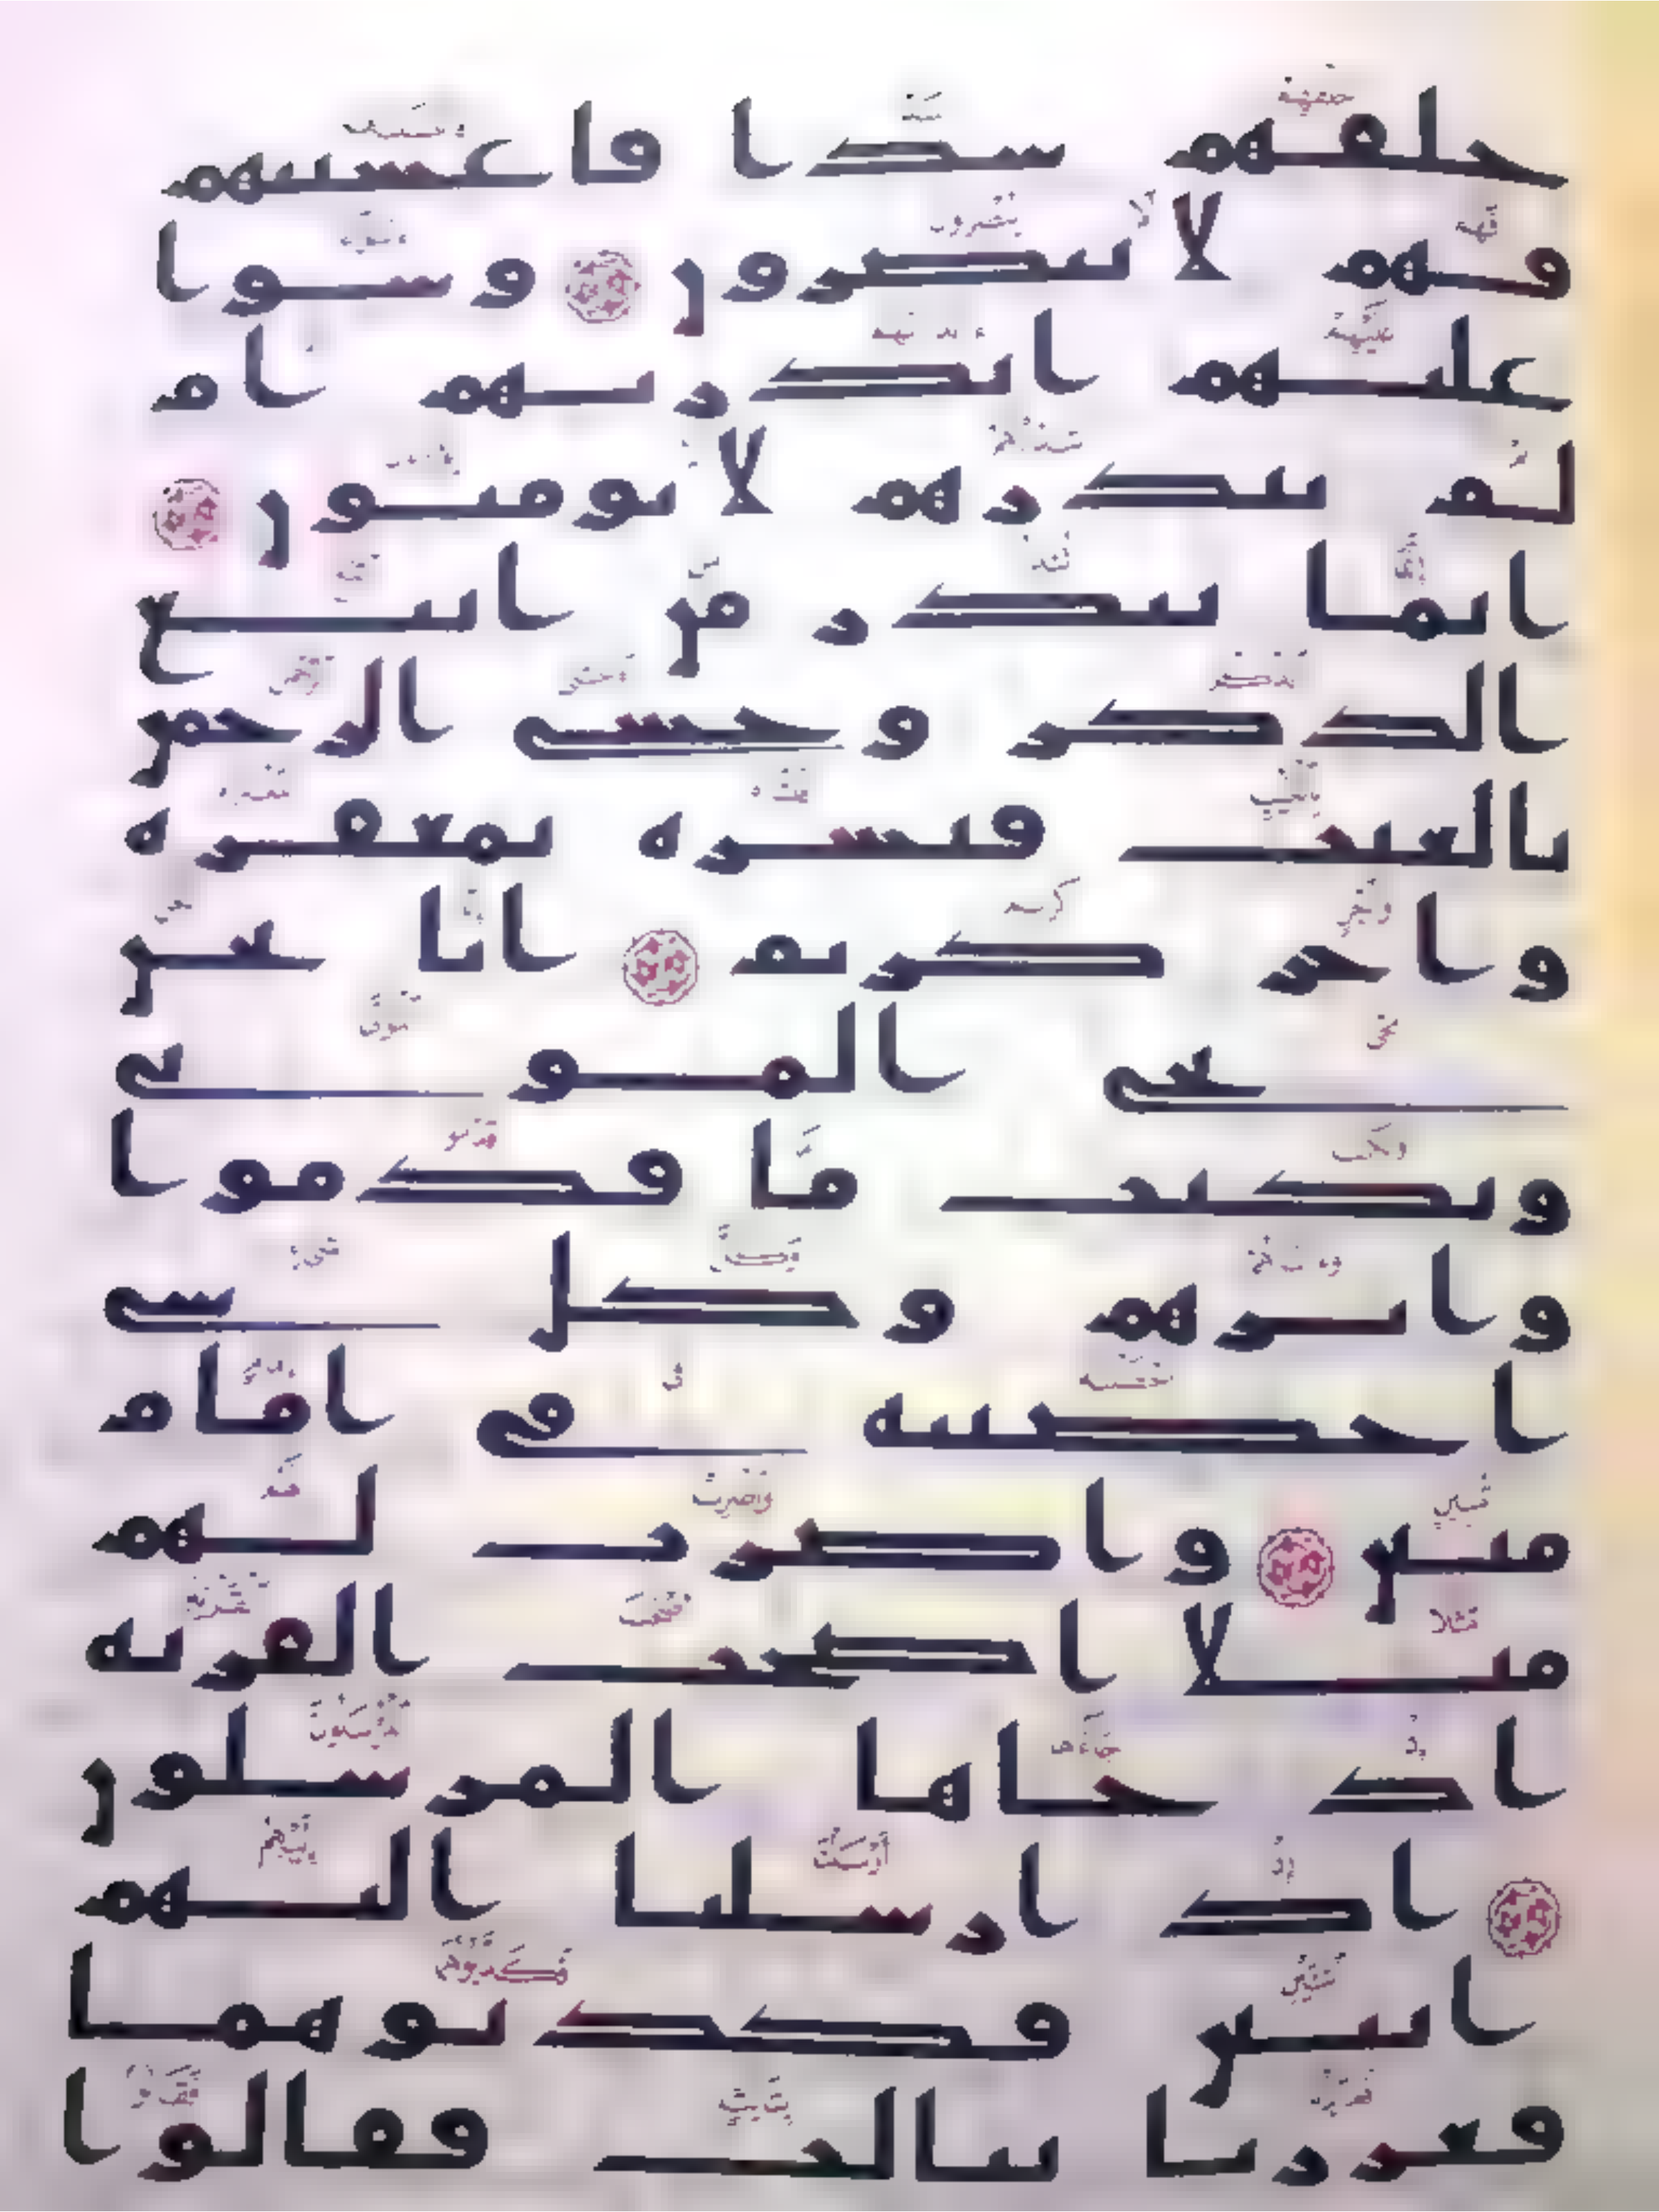 خلفهم سدا فاغشينهم
فهم لا يبصرون وسوا
عليهم انذرتهم ام
لم تنذرهم لا يومنون
انما تنذر من اتبع
الذكر وخشى الرحمن
بالغيب فبشره بمغفره
واجر كريم انا نحن
نحى الموتى
ونكتب ما قدموا
واثرهم وكل شى
احصينه فى امام
مبين واضرب لهم
مثلا اصحب القريه
اذ جاها المرسلون
اذ ارسلنا اليهم
اثنين فكذبوهما
فعززنا بثالث فقالوا